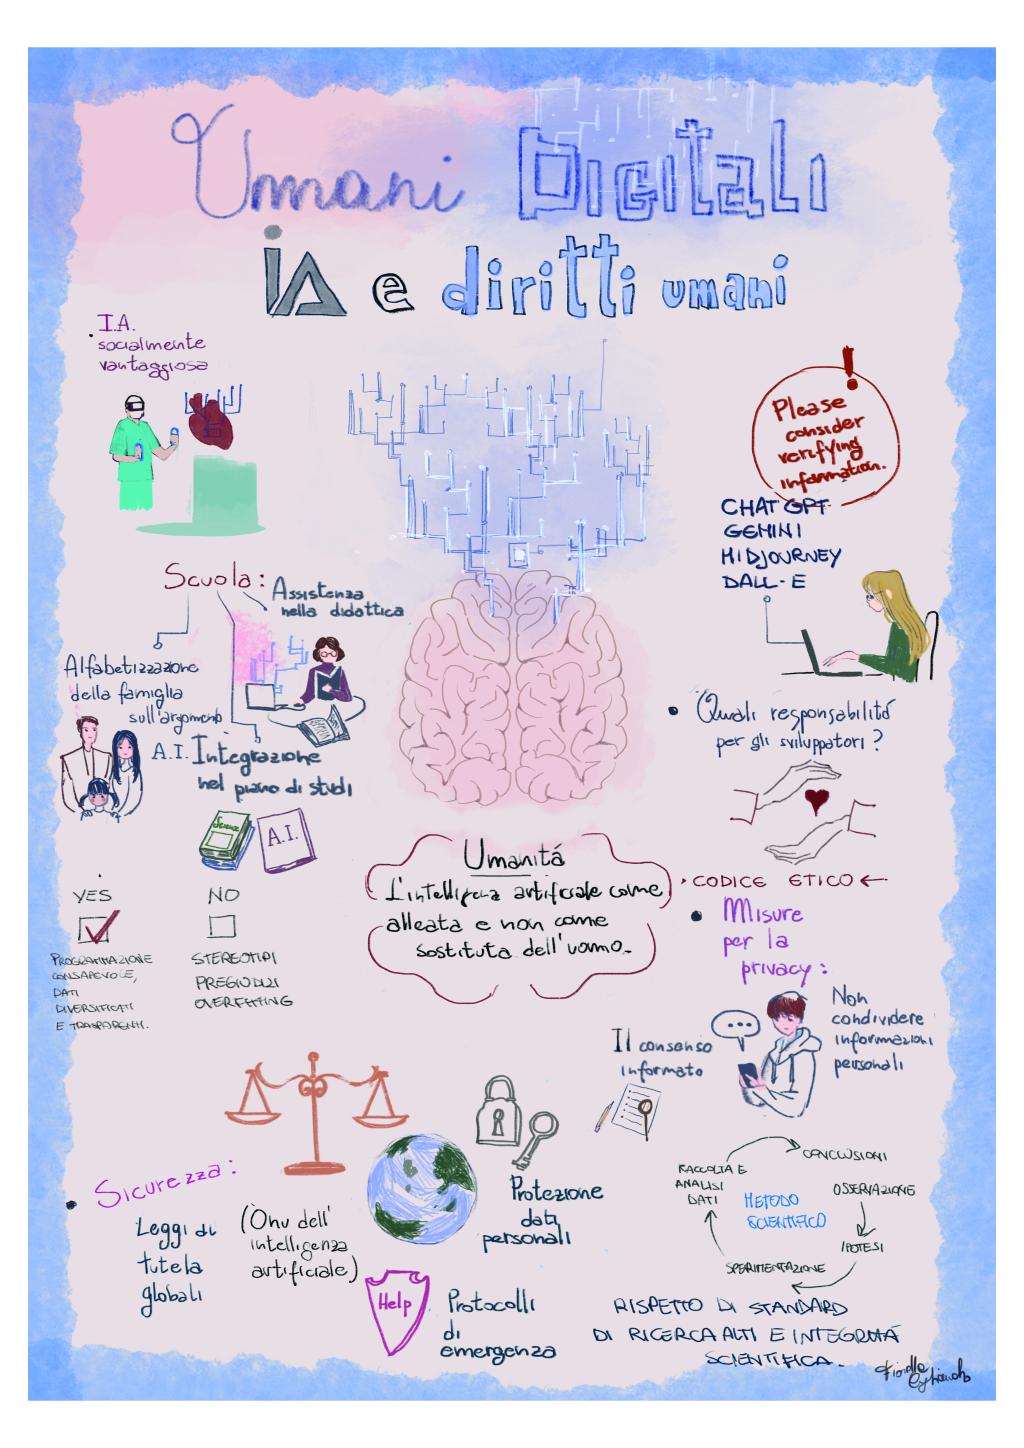 Umani Digitali
iA e diritti umani
I.A.
socialmente
vantaggiosa
!
Please
consider
verifying
information.
CHAT GPT
GEMINI
MIDJOURNEY
DALL-E
Scuola:
Assistenza
nella didattica
Alfabetizzazione
della famiglia
sull'argomento
A.I.
Integrazione
nel piano di studi
Scienze
A.I.
Quali responsabilitá
per gli sviluppatori?
YES
NO
PROGRAMMAZIONE
CONSAPEVOLE,
DATI
DIVERSIFICATI
E TRASPARENTI.
STEREOTIPI
PREGIUDIZI
OVERFITTING
Umanitá
L'intelligenza artificiale come
alleata e non come
sostituta dell'uomo.
CODICE ETICO
Misure
per la
privacy:
Il consenso
informato
...
Non
condividere
informazioni
personali
Sicurezza:
Leggi di
tutela
globali
(Onu dell'
intelligenza
artificiale)
Protezione
dati
personali
Help
Protocolli
di
emergenza
CONCLUSIONI
RACCOLTA E
ANALISI
DATI
METODO
SCIENTIFICO
OSSERVAZIONE
IPOTESI
SPERIMENTAZIONE
RISPETTO DI STANDARD
DI RICERCA ALTI E INTEGRITÁ
SCIENTIFICA.